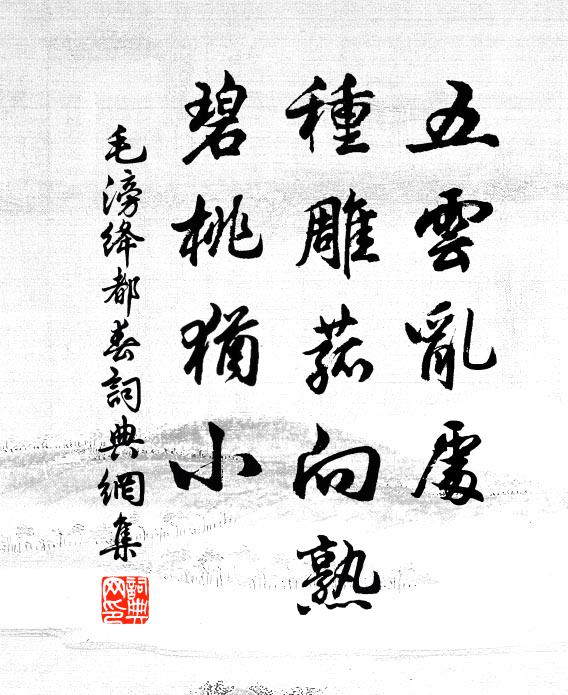 五雲亂處
種雕菰向熟
碧桃猶小
毛滂绛都春詞典網集
詞典网印